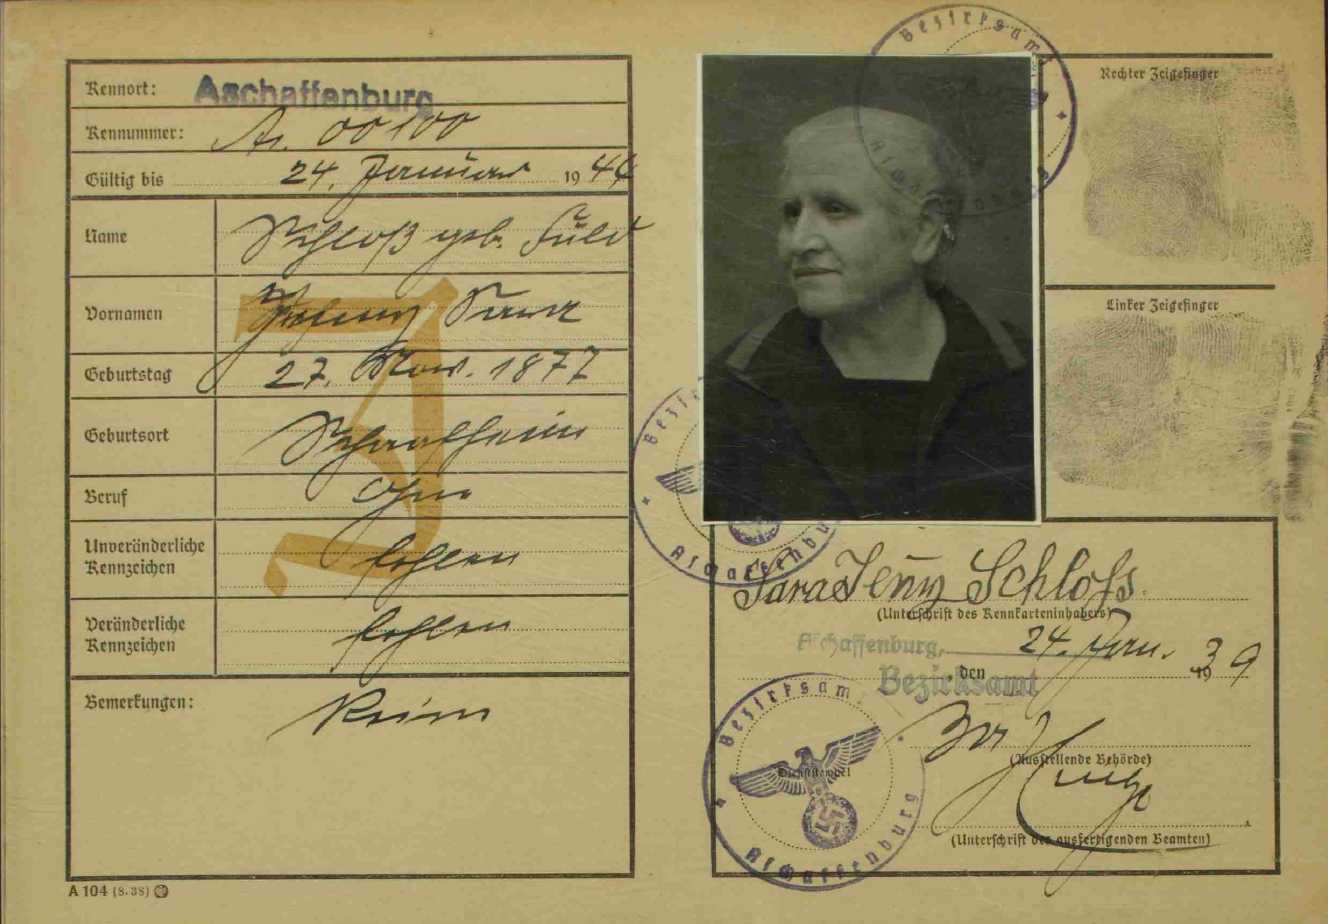 Kennort: Aschaffenburg
Kennummer: A. 00100
Gültig bis 24. Januar 1944
Name Schloß geb. Fuld
Vornamen Jenny Sara
Geburtstag 27. Nov. 1877
Geburtsort Schaafheim
Beruf Ohne
Unveränderliche Kennzeichen fehlen
Veränderliche Kennzeichen fehlen
Bemerkungen: Keine
J
A 104 (8. 38)
Bezirksamt Aschaffenburg
Rechter Zeigefinger
Linker Zeigefinger
Bezirksamt Aschaffenburg
Sara Jenny Schloss.
(Unterschrift des Kennkarteninhabers)
Aschaffenburg, 24. Jan.
, den 1939
Bezirksamt
(Ausstellende Behörde)
Bezirksamt Aschaffenburg
Dienststempel
(Unterschrift des ausfertigenden Beamten)